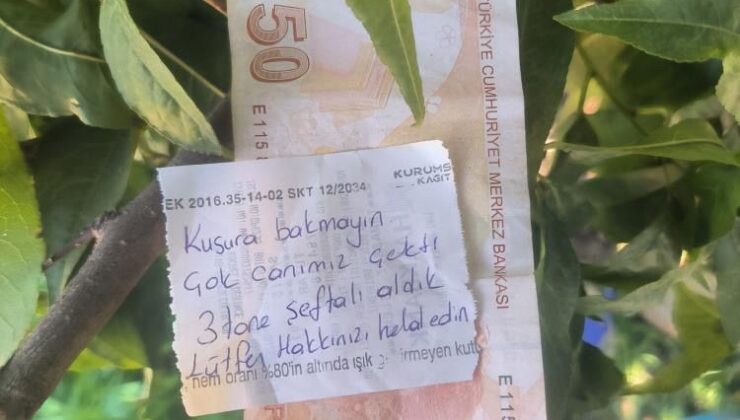 50
E 115
TÜRKİYE CUMHURİYET MERKEZ BANKASI
KURUMS
KAĞIT
EK 2016.35-14-02 SKT 12/2034
Kusura bakmayın
Çok canımız çekti
3 tane şeftali aldık
Lütfen Hakkınızı helal edin
nem oranı %80'in altında ışık geçirmeyen kutu
E 115